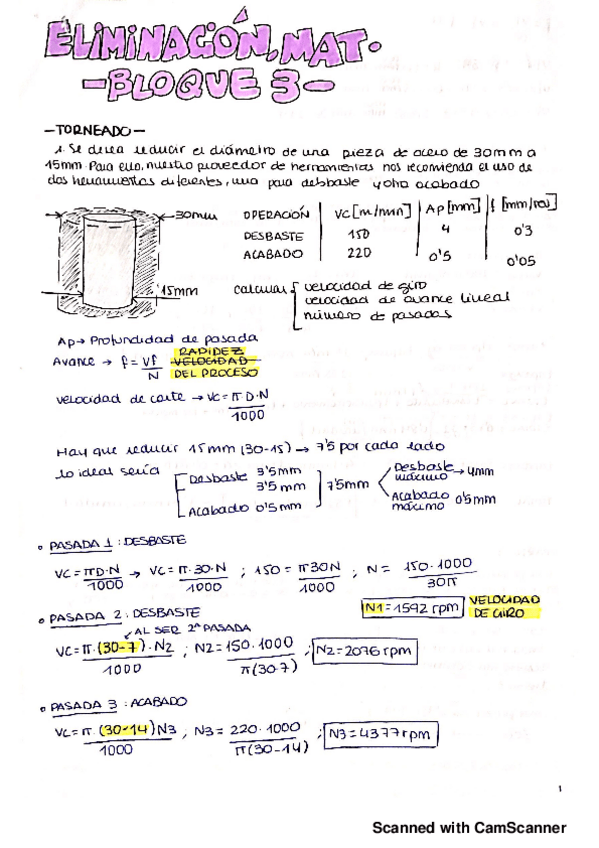 ELIMINACIÓN. MAT.
- BLOQUE 3 -
- TORNEADO -
1. Se desea reducir el diámetro de una pieza de acero de 30mm a
15mm. Para ello, nuestro proveedor de herramientas nos recomienda el uso de
dos herramientas diferentes, una para desbaste y otra acabado
30mm
15mm
OPERACIÓN | Vc [m/min] | Ap [mm] | f [mm/rev]
DESBASTE 150 4 0'3
ACABADO 220 0'5 0'05
calcular { velocidad de giro
velocidad de avance lineal
número de pasadas
Ap → Profundidad de pasada
Avance → f = Vf/N RAPIDEZ VELOCIDAD DEL PROCESO
velocidad de corte → Vc = π·D·N/1000
Hay que reducir 15mm (30-15) → 7'5 por cada lado
lo ideal sería [ Desbaste 3'5mm
3'5mm
Acabado 0'5mm ] 7'5mm < Desbaste máximo → 4mm
Acabado máximo 0'5mm
• PASADA 1: DESBASTE
Vc = πD·N/1000 → Vc = π·30·N/1000 ; 150 = π30N/1000 ; N = 150·1000/30π
N1 = 1592 rpm VELOCIDAD DE GIRO
• PASADA 2: DESBASTE
↙ AL SER 2ª PASADA
Vc = π·(30-7)·N2/1000 ; N2 = 150·1000/π(30-7) ; N2 = 2076 rpm
• PASADA 3: ACABADO
Vc = π·(30-14)N3/1000 , N3 = 220·1000/π(30-14) ; N3 = 4377 rpm
1
Scanned with CamScanner